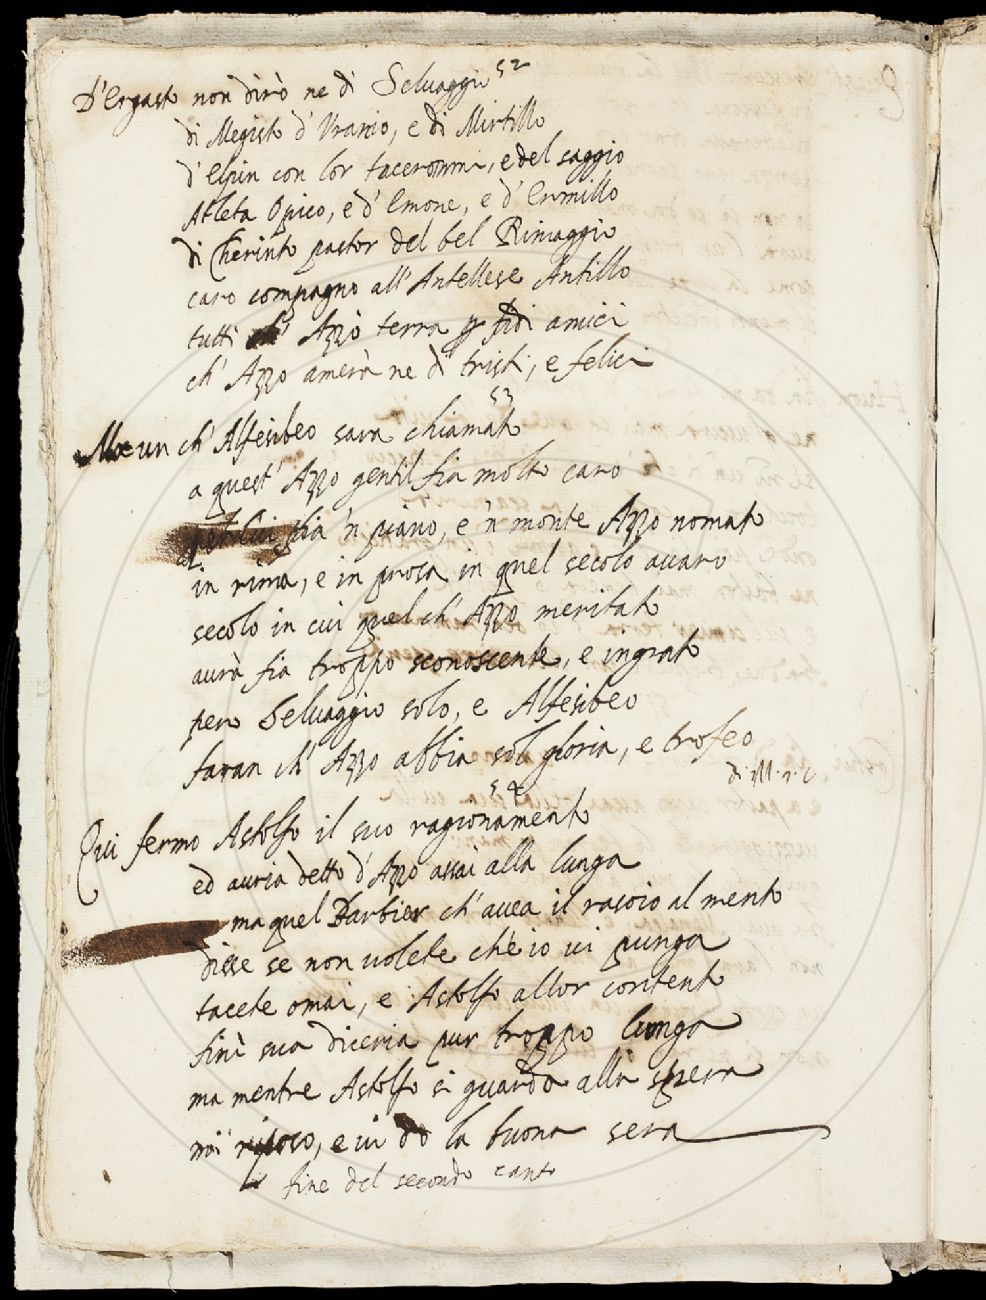 52
D'Ergasto non dirò ne di Selvaggio
di Megisto d'Uranio, e di Mirtillo
d'Elpin con lor tacerommi, e del saggio
Atleta Opico, e d'Emone, e d'Ermillo
di Cherinto pastor del bel Rimaggio
caro compagno all'Antellese Antillo
tutti Azzo terrà p fidi amici
ch'Azzo amerà ne dì tristi, e felici
53
Ma un ch'Alfesibeo sara chiamato
a quest'Azzo gentil fia molto caro
fia 'n piano, e 'n monte Azzo nomato
in rima, e in prosa in quel secolo avaro
secolo in cui quel ch'Azzo meritato
aurà fia troppo sconoscente, e ingrato
pero Selvaggio solo, e Alfesibeo
faran ch'Azzo abbia sol gloria, e trofeo
di M.r.C.
54
Qui fermo Astolfo il suo ragionamento
ed auria detto d'Azzo assai alla lunga
ma quel Barbier ch'avea il rasoio al mento
disse se non uolete ch'e io ui punga
tacete omai, e Astolfo allor contento
finì sua diceria pur troppo lunga
ma mentre Astolfo si guarda alla spera
mi riposo, e ui do la buona sera
fine del secondo canto